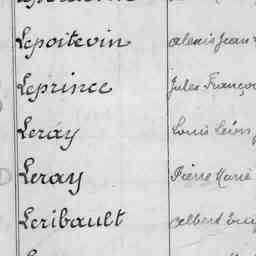 Lepoitevin Alexis Jean
Leprince Jules Franço
Leray Louis Léon
Leray Pierre Marie
Leribault Albert